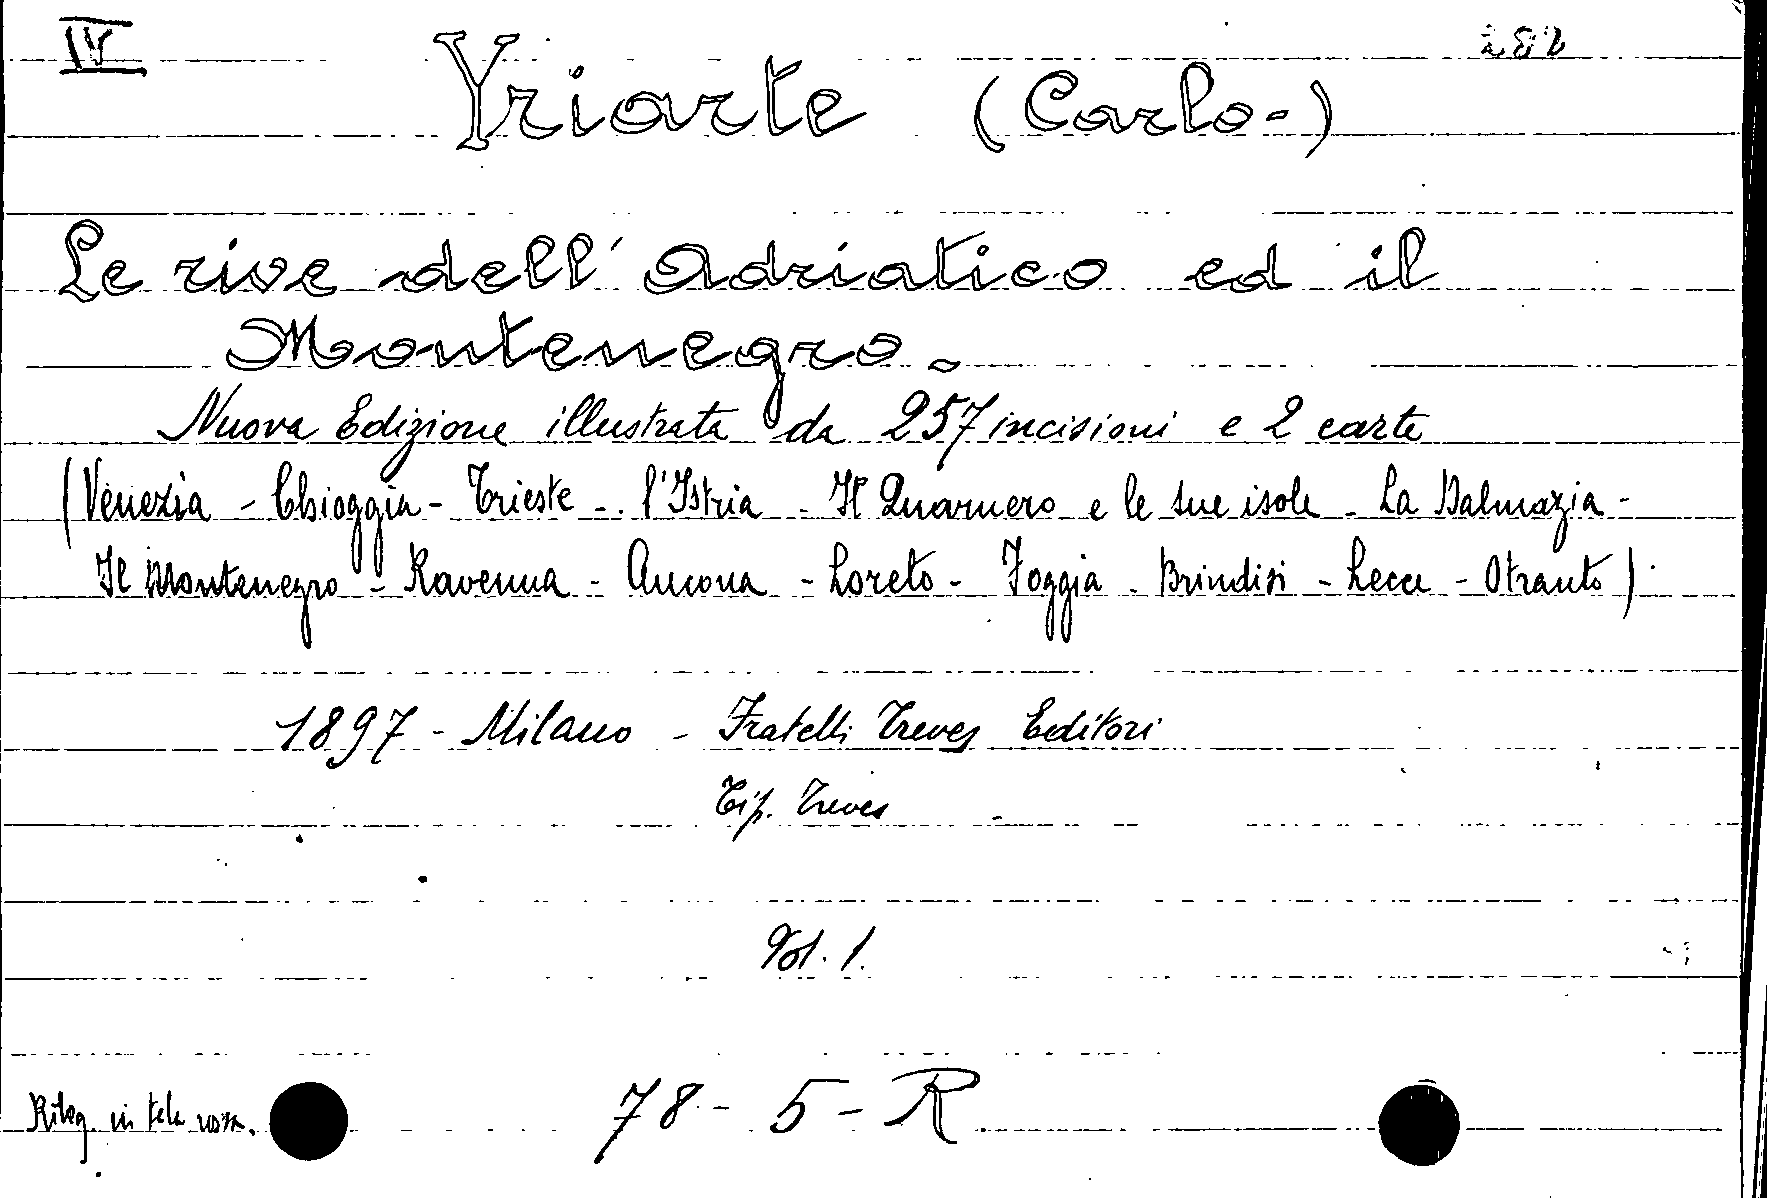 IV 282
Yriarte (Carlo-)
Le rive dell'Adriatico ed il
Montenegro.
Nuova Edizione illustrata da 257 incisioni e 2 carte
(Venezia - Chioggia - Trieste - l'Istria - Il Quarnero e le sue isole - La Dalmazia -
Il Montenegro - Ravenna - Ancona - Loreto - Foggia - Brindisi - Lecce - Otranto)
1897 - Milano - Fratelli Treves Editori
Tip. Treves
Vol. 1.
Rileg. in tela rossa.
78 - 5 - R